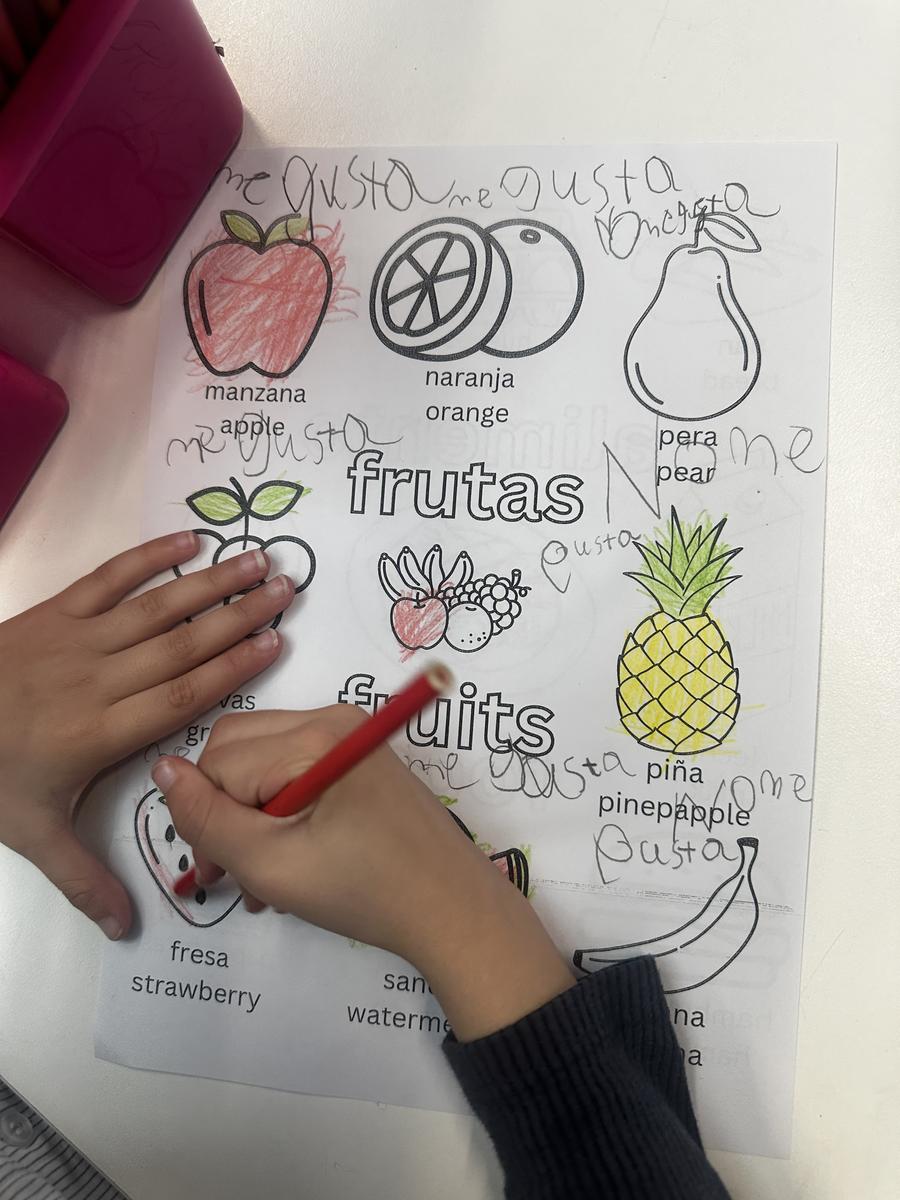 me gusta me gusta
No me gusta
manzana
apple
naranja
orange
pera
pear
me gusta
frutas
No me
gusta
vas
gr
fruits
me
me gusta
piña
pinepapple
No me
gusta
fresa
strawberry
san
waterme
na
na